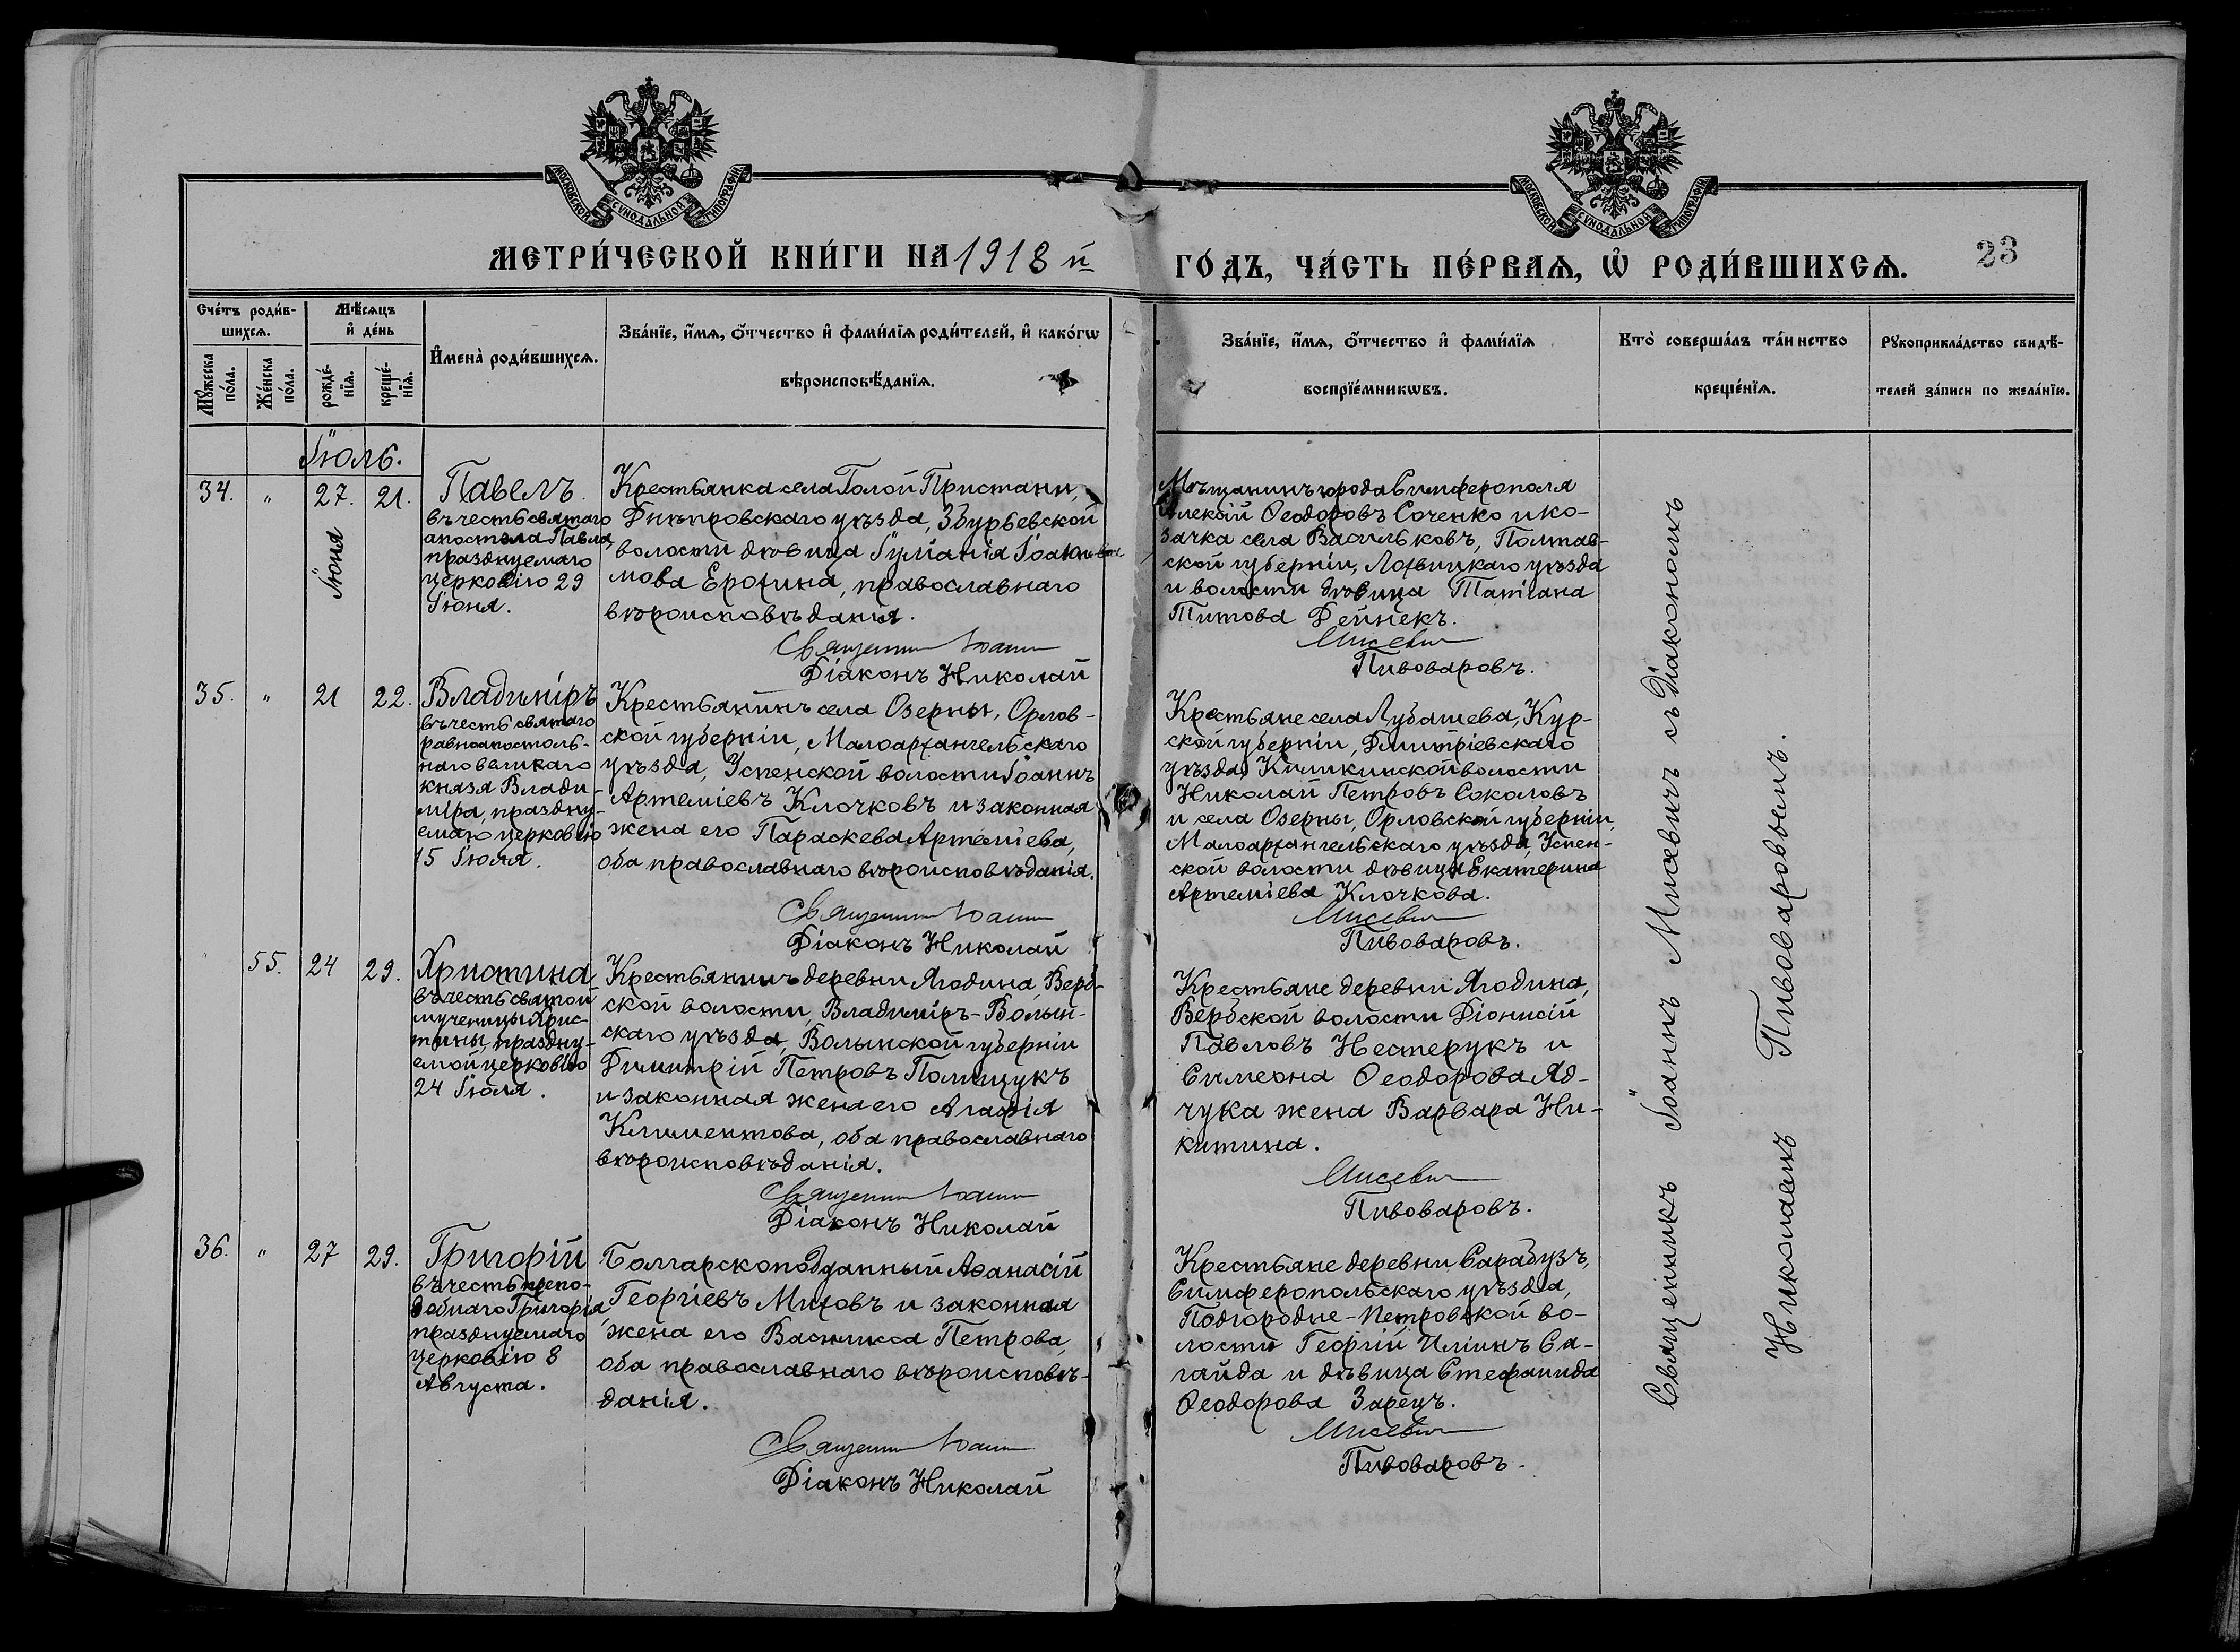 МОСКОВСКОЙ СУНОДАЛЬНОЙ ТИПОГРАФІИ
МОСКОВСКОЙ СУНОДАЛЬНОЙ ТИПОГРАФІИ
МЕТРИ́ЧЕСКОЙ КНИ́ГИ НА 1918 й
ГО́ДЪ, ЧА́СТЬ ПЕ́РВАѦ, Ѡ҆ РОДИ́ВШИХСѦ.
23
Сче́тъ роди́в-
шихсѧ.
Мꙋ́жеска
по́ла.
Же́нска
по́ла.
Мѣ́сѧцъ
и҆ де́нь
рожде́-
нїѧ.
креще́-
нїѧ.
И҆мена̀ роди́вшихсѧ.
Зва́нїе, и҆́мѧ, ѻ҆́тчество и҆ фами́лїѧ роди́телей, и҆ како́гѡ
вѣроисповѣ́данїѧ.
Зва́нїе, и҆́мѧ, ѻ҆́тчество и҆ фами́лїѧ
воспрїе́мникѡвъ.
Кто̀ соверша́лъ та́инство
креще́нїѧ.
Рꙋкоприкла́дство свидѣ́-
телей за́писи по жела́нїю.
Іюль.
34. " 27. 21.
Іюня
Павелъ.
въ честь святаго
апостола Павла,
празднуемаго
церковію 29
Іюня.
Крестьянка села Голой Пристани,
Днѣпровскаго уѣзда, Збурьевской
волости дѣвица Іуліанія
Ерохина, православнаго
вѣроисповѣданія.
Священник Іоанн
Діаконъ Николай
Мѣщанинъ города Симферополя
Алексій Ѳеодоровъ Соченко и ко-
зачка села Васильковъ, Полтав-
ской губерніи, Лохвицкаго уѣзда
и волости дѣвица Татіана
Титова Дейнекъ.
Мисевич
Пивоваровъ.
35. " 21 22.
Владиміръ
въ честь святаго
равноапостоль-
наго великаго
князя Влади-
міра, праздну-
емаго церковію
15 Іюля.
Крестьянинъ села Озерны, Орлов-
ской губерніи, Малоархангельскаго
уѣзда, Успенской волости Іоаннъ
Артеміевъ Клочковъ и законная
жена его Параскева Артеміева,
оба православнаго вѣроисповѣданія.
Священник Іоанн
Діаконъ Николай
Крестьяне села Лубашева, Кур-
ской губерніи, Дмитріевскаго
уѣзда, Киликинской волости
Николай Петровъ Соколовъ
и села Озерны, Орловской губерніи,
Малоархангельскаго уѣзда, Успен-
ской волости дѣвица Екатерина
Артеміева Клочкова.
Мисевич
Пивоваровъ.
55. 24 29.
Христина
въ честь святой
мученицы Хрис-
тины, праздну-
емой церковію
24 Іюля.
Крестьянинъ деревни Ягодина, Верб-
ской волости, Владиміръ-Волын-
скаго уѣзда, Волынской губерніи
Димитрій Петровъ Полищукъ
и законная жена его Агафія
Климентова, оба православнаго
вѣроисповѣданія.
Священник Іоанн
Діаконъ Николай
Крестьяне деревни Ягодина,
Вербской волости Діонисій
Павловъ Нестерукъ и
Симеона Ѳеодорова Яд-
чука жена Варвара Ни-
китина.
Мисевич
Пивоваровъ.
36. " 27 29.
Григорій
въ честь препо-
добнаго Григорія,
празднуемаго
церковію 8
Августа.
Болгарскоподданный Аѳанасій
Георгіевъ Миховъ и законная
жена его Василисса Петрова,
оба православнаго вѣроисповѣ-
данія.
Священник Іоанн
Діаконъ Николай
Крестьяне деревни Сарабузъ,
Симферопольскаго уѣзда,
Подгородне-Петровской во-
лости Георгій Иліинъ Са-
гайда и дѣвица Стефанида
Ѳеодорова Зарецъ.
Мисевич
Пивоваровъ.
Священникъ Іоаннъ Мисевичъ съ Діакономъ
Николаемъ Пивоваровымъ.